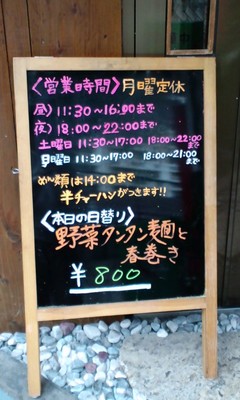 〈営業時間〉月曜定休
昼)11:30~16:00まで
(夜)18:00~22:00まで
土曜日 11:30~17:00 18:00~22:00まで
日曜日 11:30~17:00 18:00~21:00まで
めん類は14:00まで
半チャーハンがつきます!!
〈本日の日替り〉
野菜タンタン麺と
春巻き
¥800